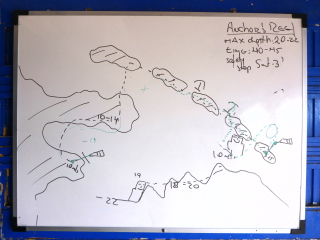 Anchor's Reef
MAX depth: 20-22
Time: 40-45
safety stop 5m-3'
10-14
10
19
18-20
-22